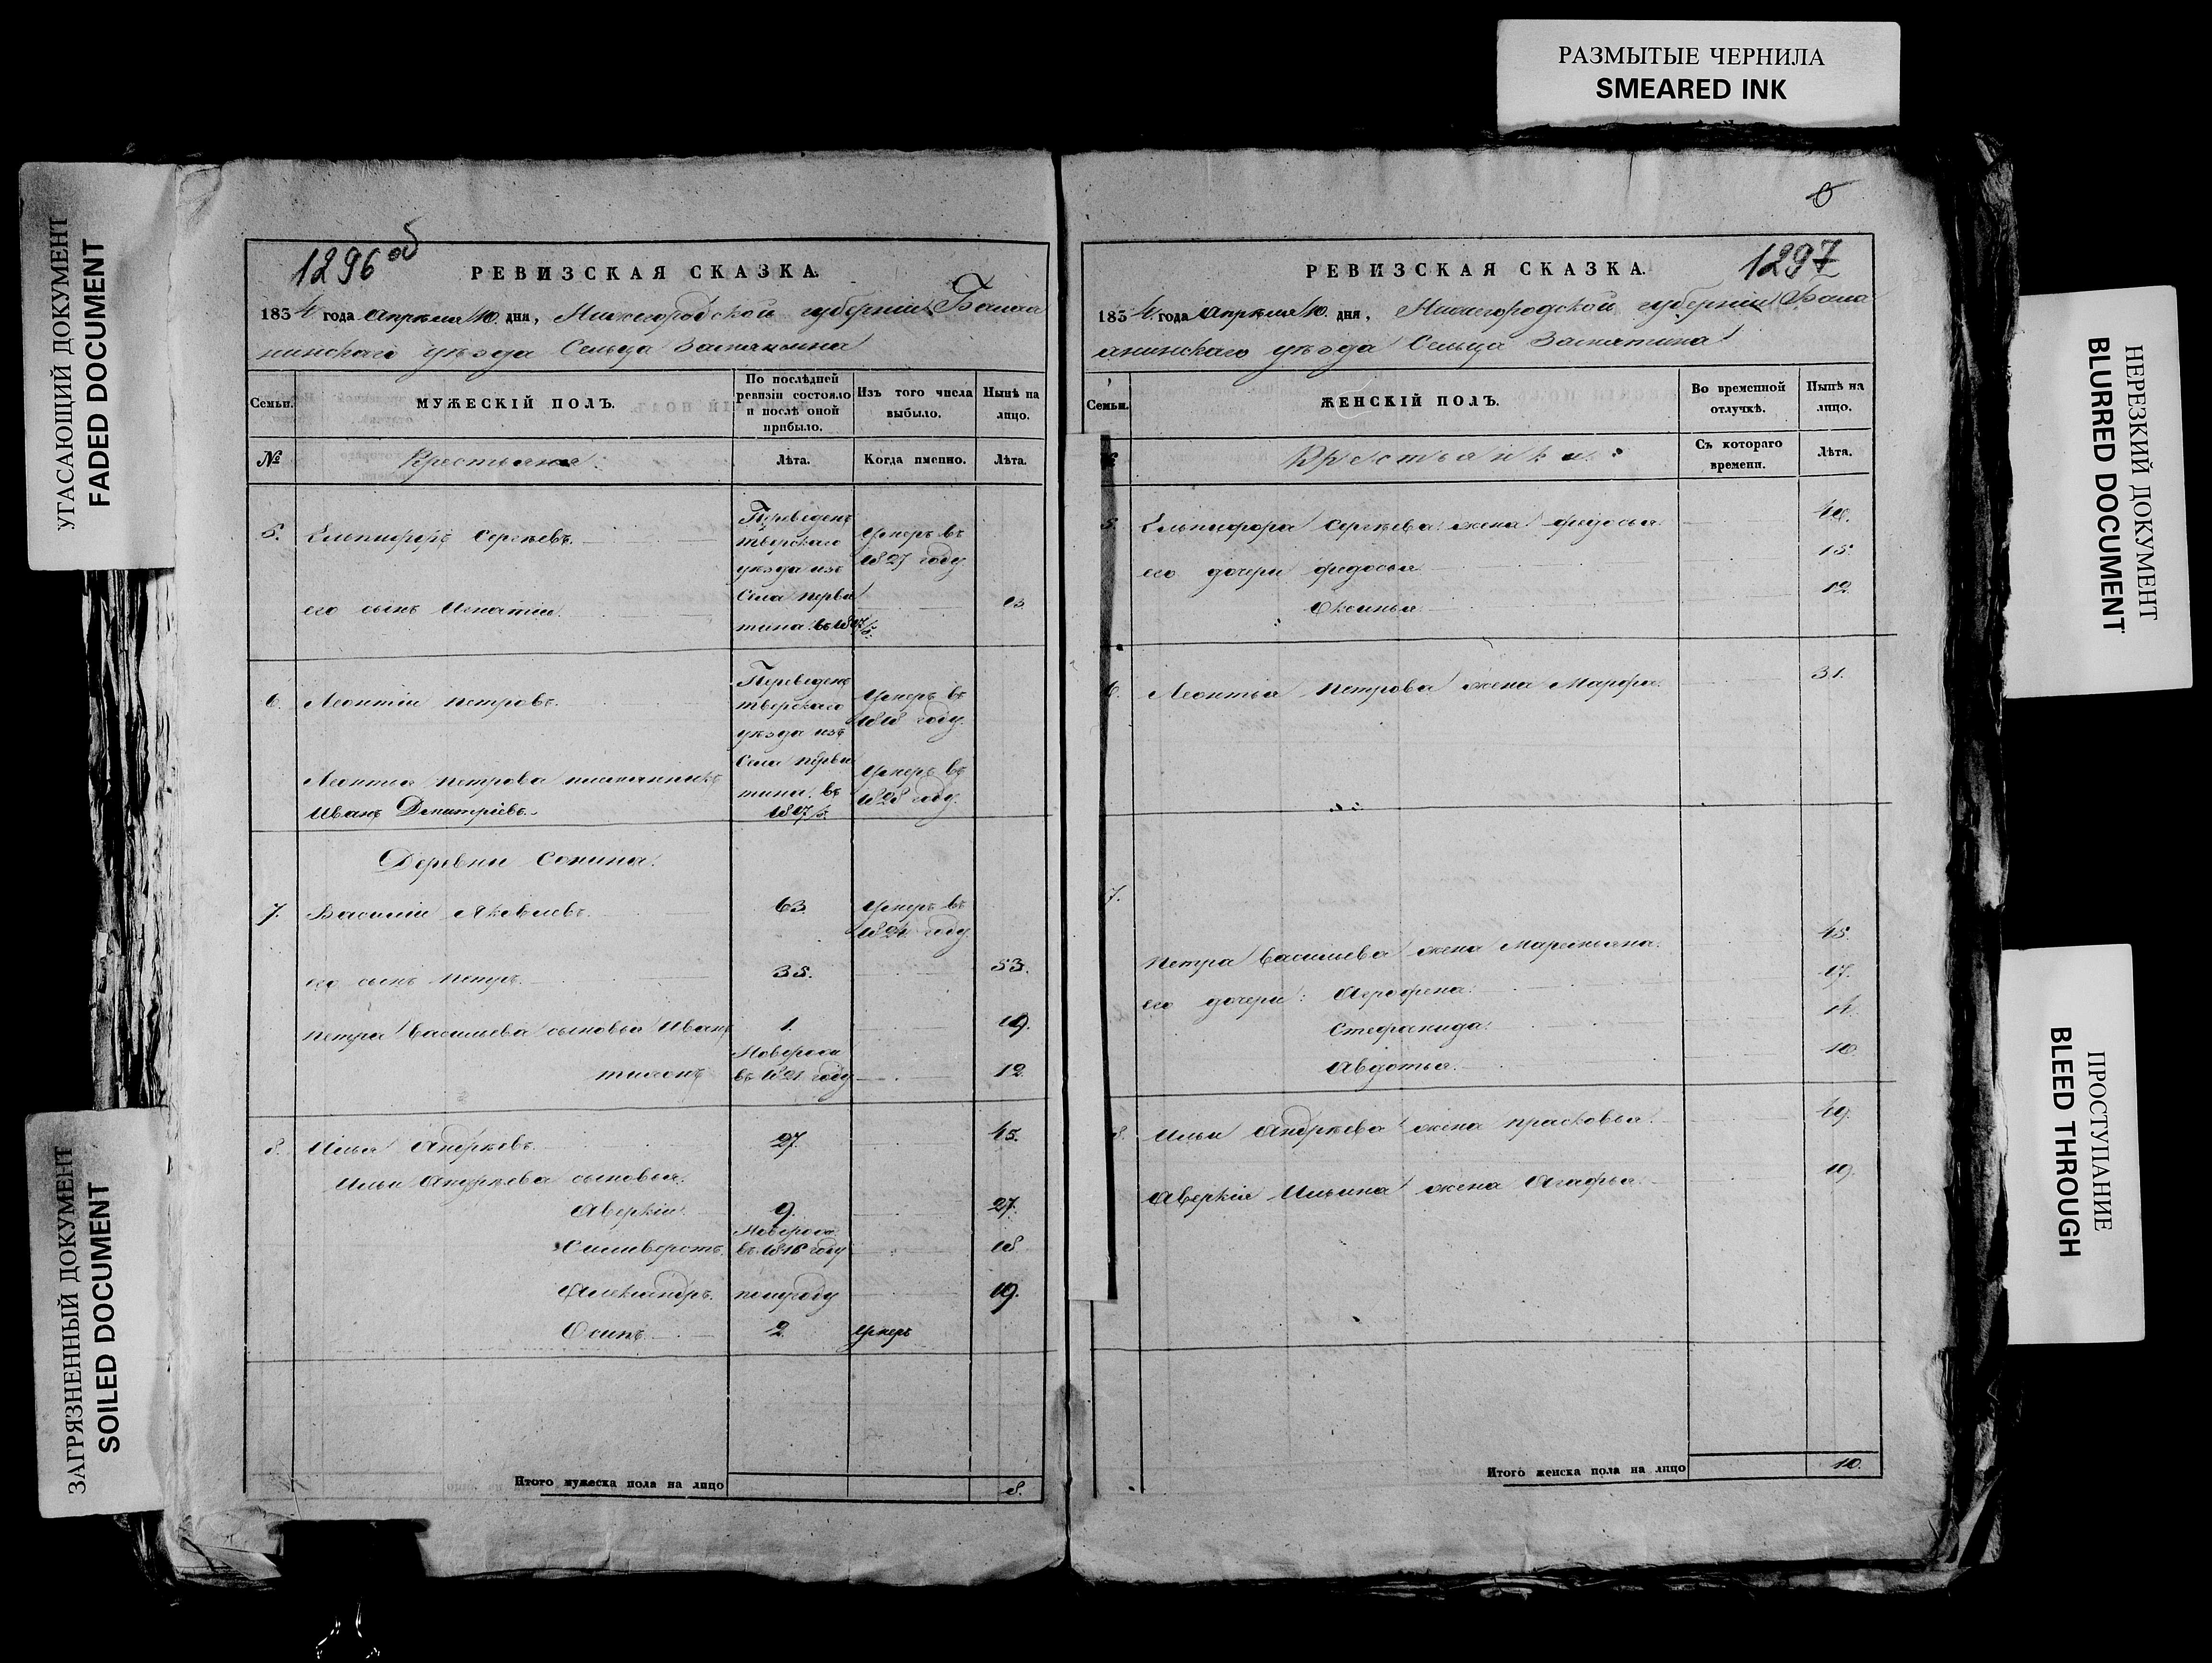 РАЗМЫТЫЕ ЧЕРНИЛА
SMEARED INK
УГАСАЮЩИЙ ДОКУМЕНТ
FADED DOCUMENT
ЗАГРЯЗНЕННЫЙ ДОКУМЕНТ
SOILED DOCUMENT
1296 об
РЕВИЗСКАЯ СКАЗКА.
1834 года Апреля 10. дня, Нижегородской губернии Бала
нинскаго уезда Сельца
Семьи.
МУЖЕСКІЙ ПОЛЪ.
По послѣдней ревизіи состояло и послѣ оной прибыло.
Изъ того числа выбыло.
Нынѣ на лицо.
№
Крестьяне:
Лѣта.
Когда именно.
Лѣта.
5. Елпифоръ Сергѣевъ. Переведенъ тверскаго уѣзда изъ Села перви тина въ Умеръ въ 1827 году
его сынъ Игнатій 13
6. Леонтій Петровъ. Переведенъ тверскаго уѣзда изъ Села перви тина въ Умеръ въ 1818 году.
Леонтія Петрова племянникъ
Иванъ Дмитріевъ. Умеръ въ 1828 году.
Деревни Сонина.
7. Василій Яковлевъ. 63 Умеръ въ 1824 году
его сынъ Петръ. 35. 53.
Петра Васильева сыновья Иванъ 1. 19.
тихонъ Новорож въ 1821 году 12
8. Илья Андрѣевъ. 27. 45.
Ильи Андрѣева сыновья.
Аверкій. 9. 27.
Силиверстъ. Новорож въ 1816 году 18
Александръ. полугоду 19.
Осипъ 2 Умеръ
Итого мужеска пола на лицо 8.
6
1297
РЕВИЗСКАЯ СКАЗКА.
1834 года Апреля 10. дня, Нижегородской губернии Бала
анинскаго уезда Сельца
Семьи.
ЖЕНСКІЙ ПОЛЪ.
Во временной отлучкѣ.
Нынѣ на лицо.
Крестьянки:
Съ котораго времени.
Лѣта.
5. Елпифора Сергѣева жена федосья 40.
его дочери федосья 15.
Оксинья 12.
6. Леонтья Петрова жена Марфа. 31.
7.
Петра Васильева жена Маремьяна. 45.
его дочери: Аграфена. 17.
Степанида. 14.
Авдотья. 10.
8. Ильи Андрѣева жена Прасковья. 49.
Аверкія Ильина жена Агафья. 19.
Итого женска пола на лицо 10.
НЕРЕЗКИЙ ДОКУМЕНТ
BLURRED DOCUMENT
ПРОСТУПАНИЕ
BLEED THROUGH